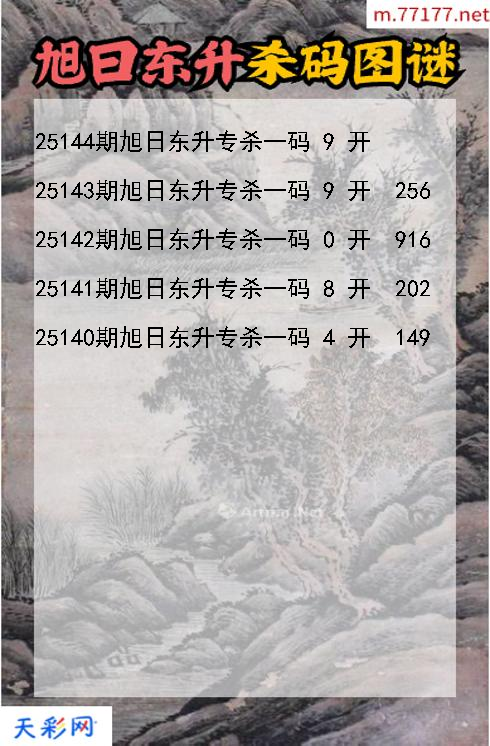 m.77177.net
旭日东升杀码图谜
25144期旭日东升专杀一码 9 开
25143期旭日东升专杀一码 9 开 256
25142期旭日东升专杀一码 0 开 916
25141期旭日东升专杀一码 8 开 202
25140期旭日东升专杀一码 4 开 149
天彩网